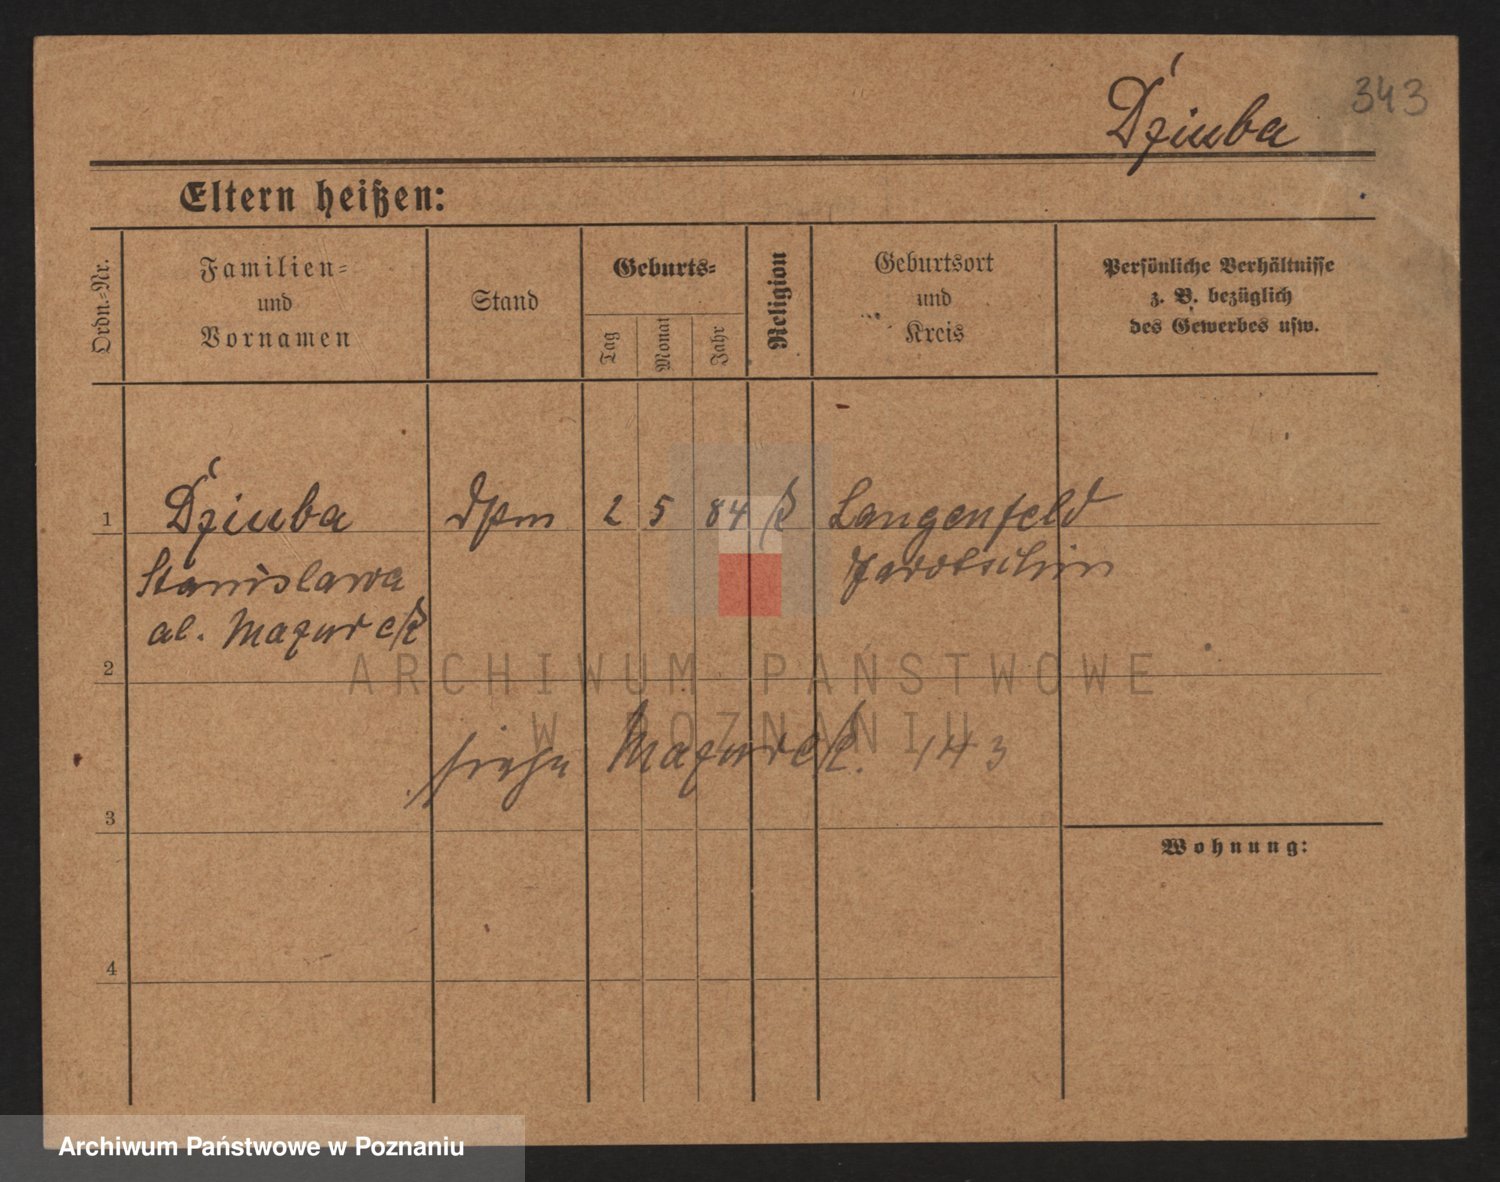 343
Dziuba
Eltern heißen:
Ordn.-Nr.
Familien-
und
Vornamen
Stand
Geburts-
Tag
Monat
Jahr
Religion
Geburtsort
und
Kreis
Persönliche Verhältnisse
z. B. bezüglich
des Gewerbes usw.
1
Dziuba
2 5 84 k
Langenfeld
Stanislawa
Jarotschin
al. Mazurek
2
ARCHIWUM PAŃSTWOWE
W POZNANIU
siehe Mazurek. 143
3
Wohnung:
4
Archiwum Państwowe w Poznaniu